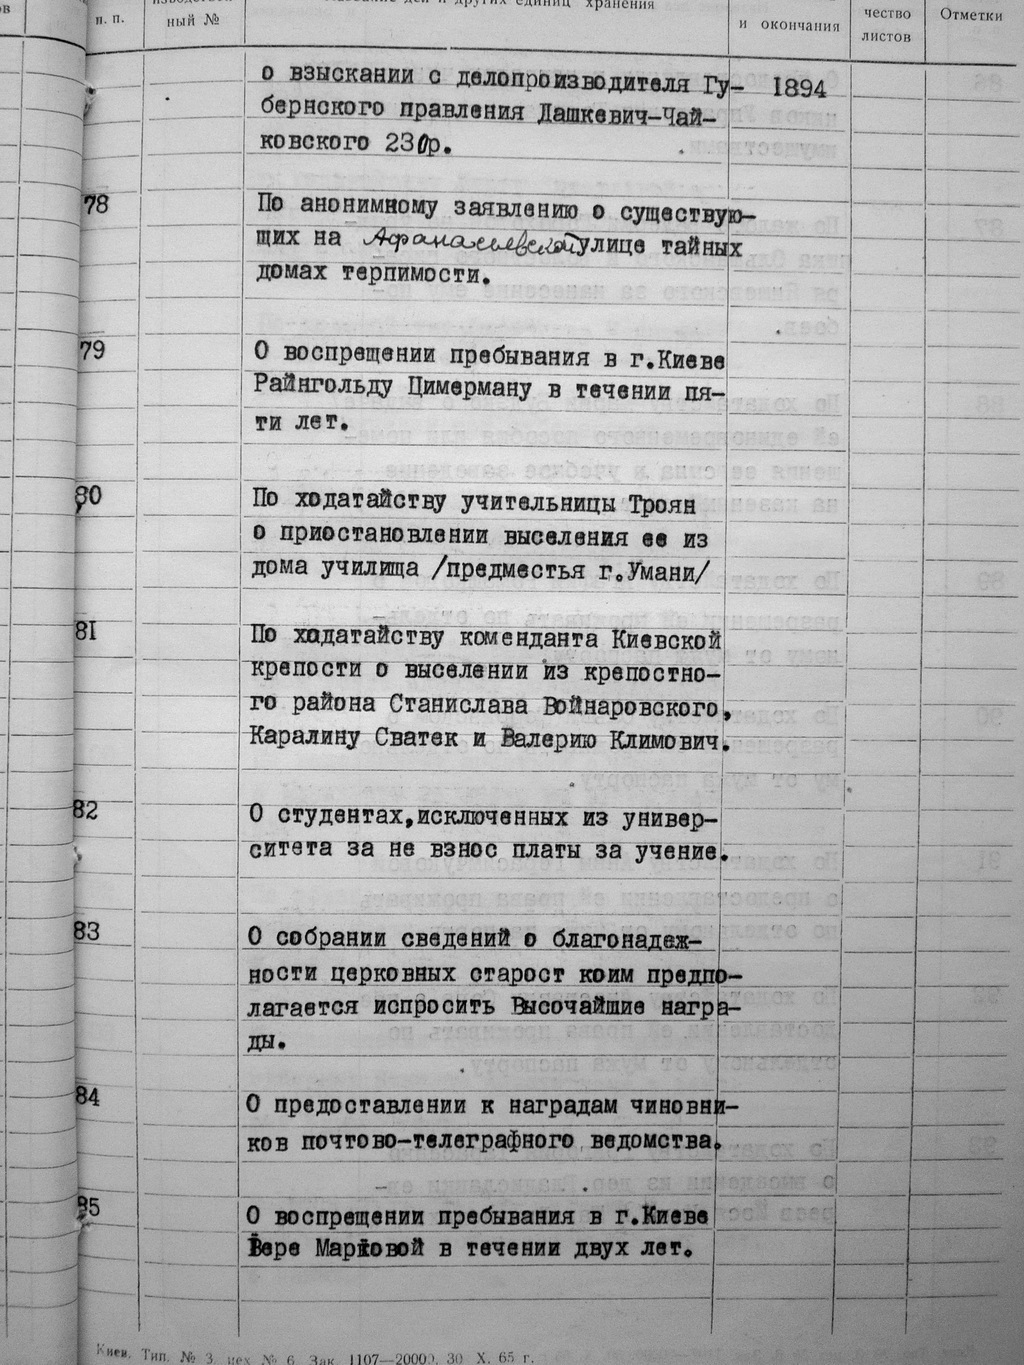 п. п.
ный №
хранения
и окончания
чество
листов
Отметки
о взыскании с делопроизводителя Гу- 1894
бернского правления Дашкевич-Чай-
ковского 230р.
78 По анонимному заявлению о существую-
щих на Афанасьевской улице тайных
домах терпимости.
79 О воспрещении пребывания в г.Киеве
Райнгольду Цимерману в течении пя-
ти лет.
80 По ходатайству учительницы Троян
о приостановлении выселения ее из
дома училища /предместья г.Умани/
81 По ходатайству коменданта Киевской
крепости о выселении из крепостно-
го района Станислава Войнаровского,
Каралину Сватек и Валерию Климович.
82 О студентах,исключенных из универ-
ситета за не взнос платы за учение.
83 О собрании сведений о благонадеж-
ности церковных старост коим предпо-
лагается испросить Высочайшие награ-
ды.
84 О предоставлении к наградам чиновни-
ков почтово-телеграфного ведомства.
85 О воспрещении пребывания в г.Киеве
Вере Марковой в течении двух лет.
Киев, Тип. № 3, цех № 6 Зак. 1107—20000. 30 X. 65 г.